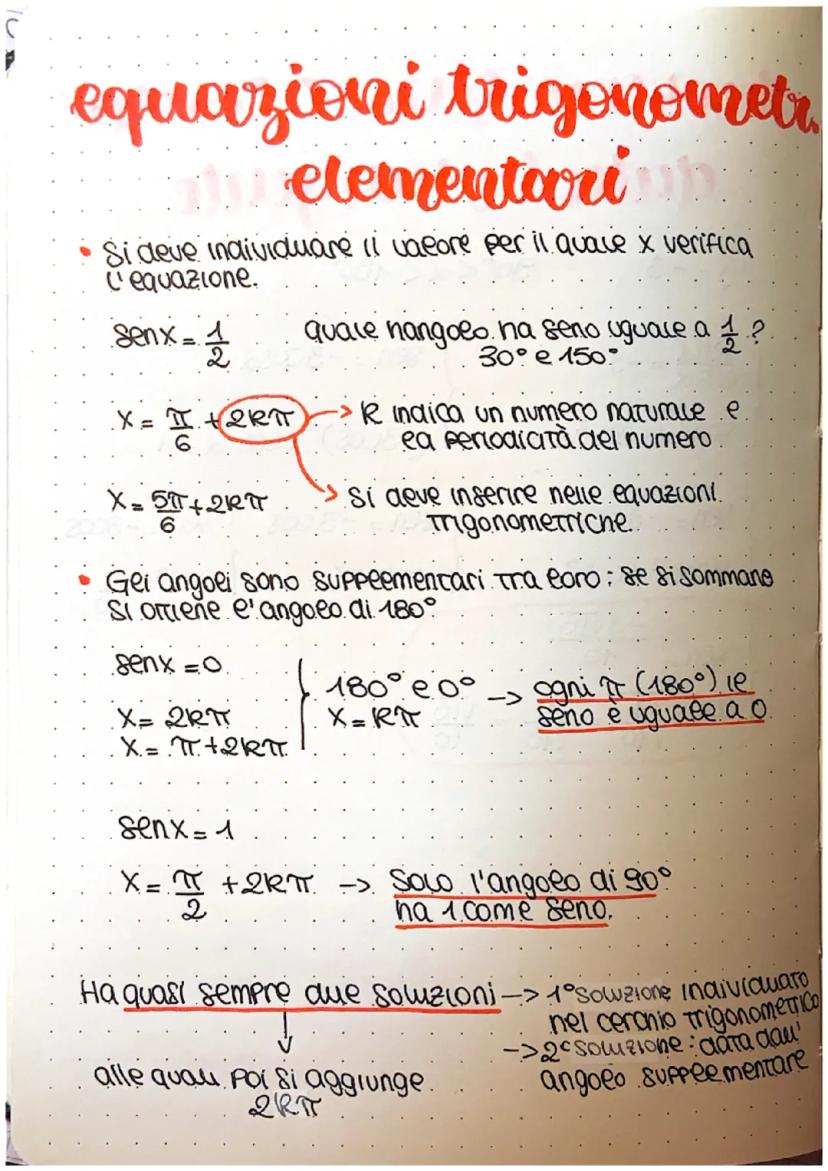 equazioni trigonometr.
elementari
• Si deve individuare il valore per il quale x verifica
l'equazione.
senx = 1/2 quale nangolo ha seno uguale a 1/2 ?
30° e 150°
x = π/6 + 2kπ → k indica un numero naturale e
la periodicità del numero.
x = 5π/6 + 2kπ → si deve inserire nelle equazioni
trigonometriche.
• Gli angoli sono supplementari tra loro: se si sommano
si ottiene l'angolo di 180°
senx = 0
180° e 0° → ogni π (180°) il
x = 2kπ x = kπ seno è uguale a 0
x = π + 2kπ
senx = 1
x = π/2 + 2kπ → Solo l'angolo di 90°
ha 1 come seno.
Ha quasi sempre due soluzioni → 1° soluzione individuato
nel cerchio trigonometrico
→ 2° soluzione: data dall'
alle quali poi si aggiunge angolo supplementare
2kπ